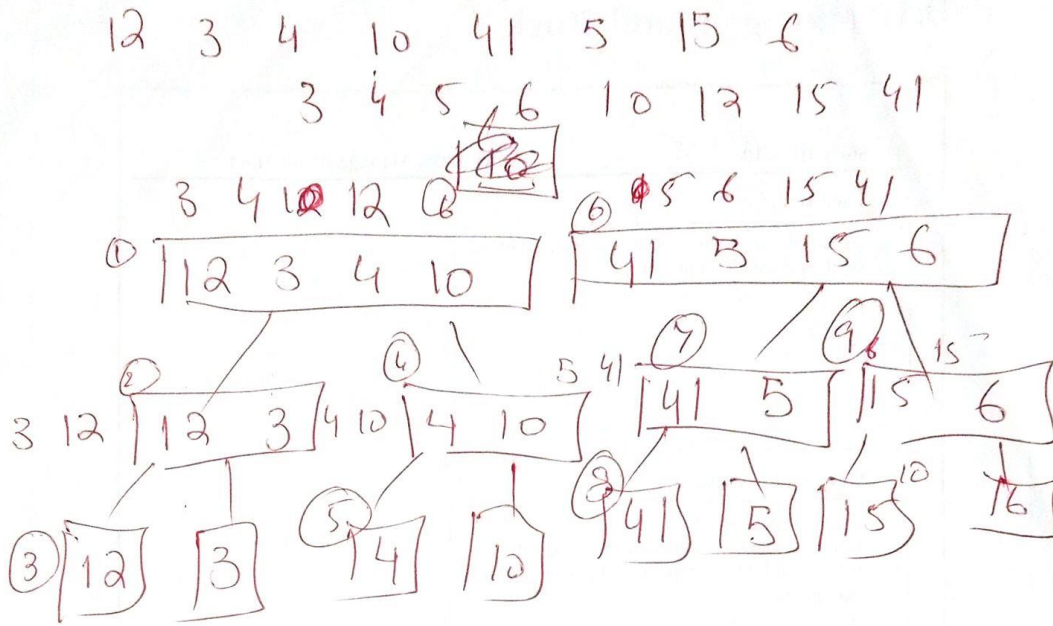 12 3 4 10 41 5 15 6
3 4 5 6 10 12 15 41
3 4 10 12
6 5 6 15 41
1 12 3 4 10
41 5 15 6
2 4 7 9
3 12 12 3
4 10 4 10
5 41 41 5
6 15 15 6
3 12 3
5 4 10
8 41 5
15 10 6